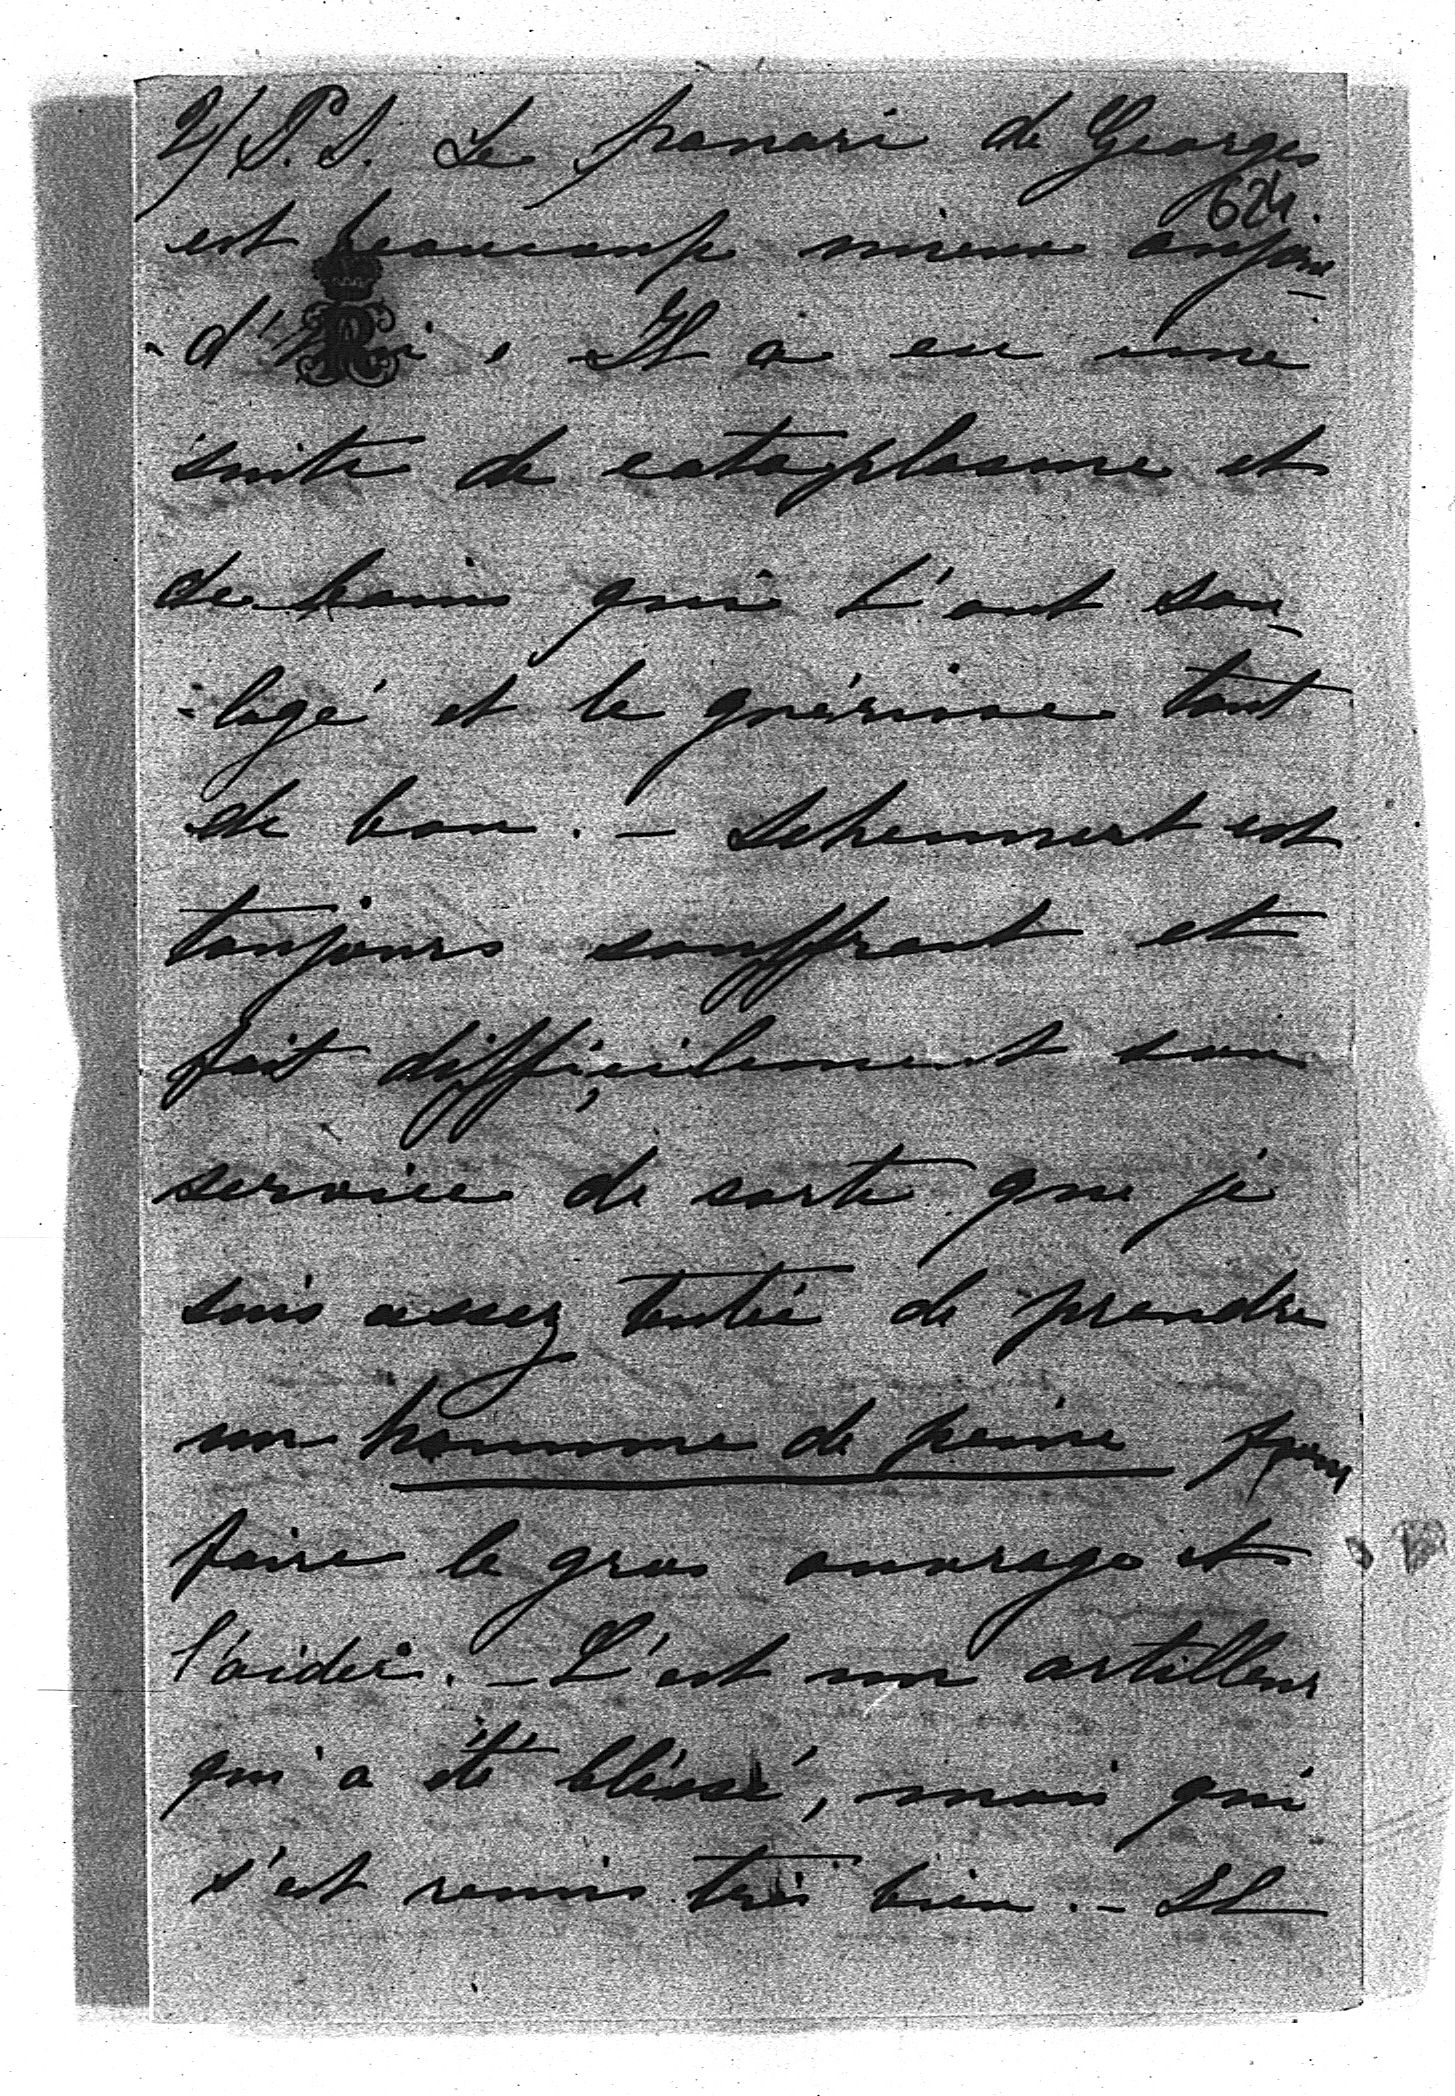 2/ P.S. Le panari de Georges
624
est beaucoup mieux aujour-
-d'hui. Il a eu une
suite de cataplasme et
de bains qui l'ont sou-
-lagé et le guérisse tout
de bon. - Schemmert est
toujours souffrant et
fait difficilement son
service de sorte que je
suis assez tentée de prendre
un homme de peine pour
faire le gros ouvrage et
l'aider. - C'est un artilleur
qui a été blessé, mais qui
s'est remis très bien. - Il